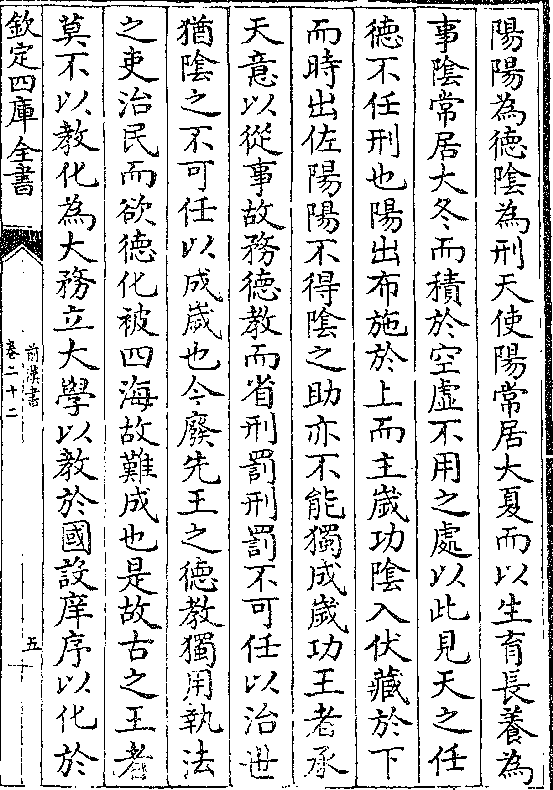 陽陽為德陰為刑天使陽常居大夏而以生育長養為
事陰常居大冬而積於空虛不用之處以此見天之任
德不任刑也陽出布施於上而主嵗功陰入伏藏於下
而時出佐陽陽不得陰之助亦不能獨成嵗功王者承
天意以從事故務德教而省刑罰刑罰不可任以治世
猶陰之不可任以成嵗也今廢先王之德教獨用執法
之吏治民而欲德化被四海故難成也是故古之王者
莫不以教化為大務立大學以教於國設庠序以化於
欽定四庫全書
前漢書
卷二十二
五